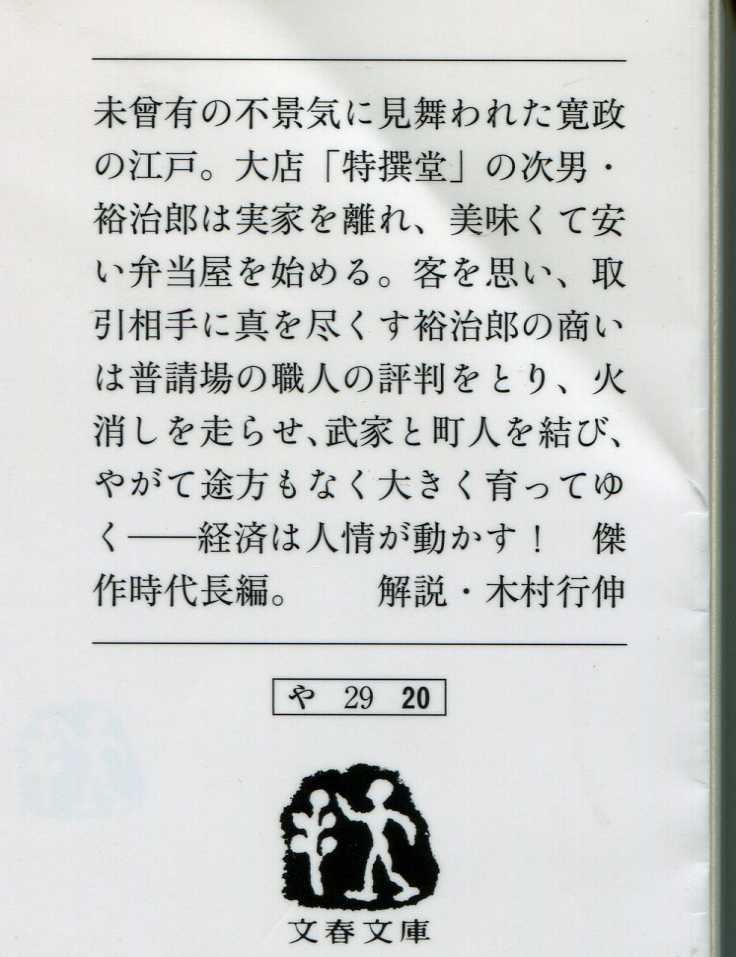 未曾有の不景気に見舞われた寛政
の江戸。大店「特撰堂」の次男・
裕治郎は実家を離れ、美味くて安
い弁当屋を始める。客を思い、取
引相手に真を尽くす裕治郎の商い
は普請場の職人の評判をとり、火
消しを走らせ、武家と町人を結び、
やがて途方もなく大きく育ってゆ
く――経済は人情が動かす!　傑
作時代長編。　　解説・木村行伸
や 29 20
文春文庫